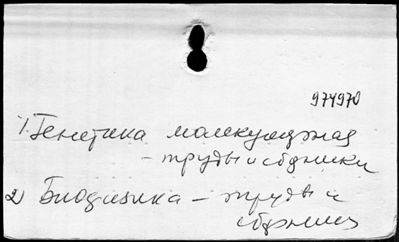 974970
1) Генетика молекулярная
– труды и сборники
2) Биофизика – труды и
сборники